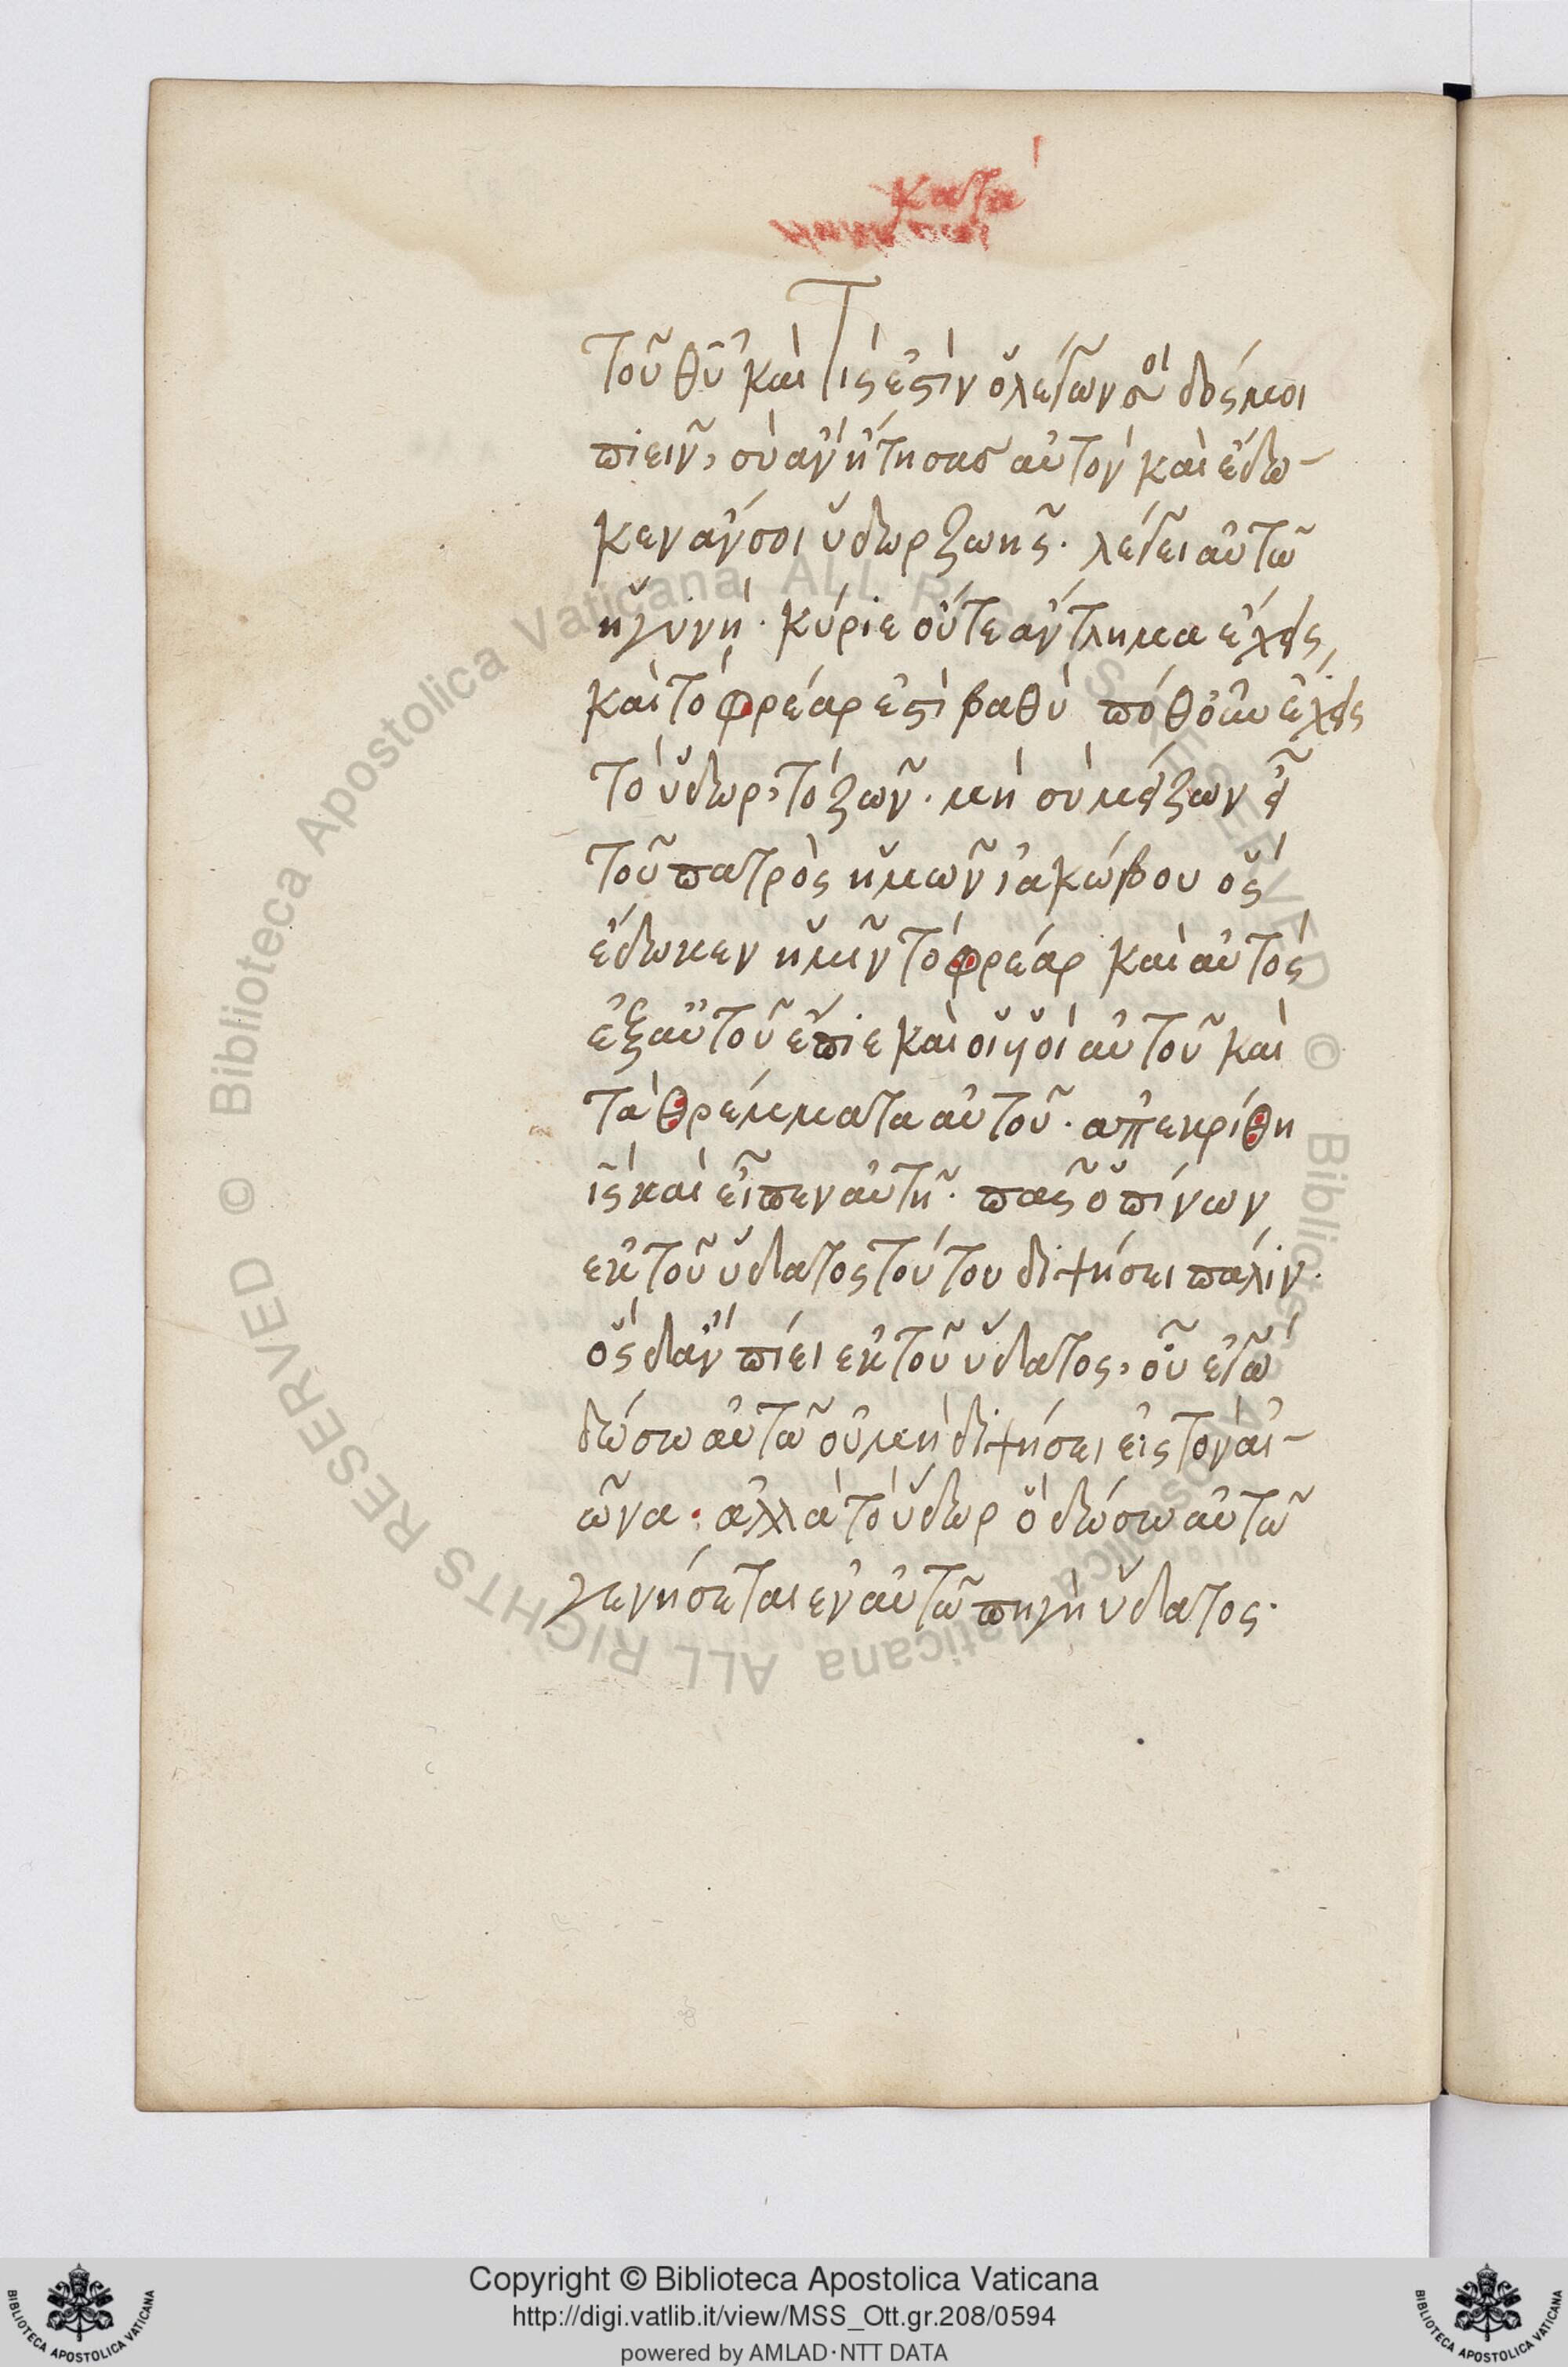 κατα
τοῦ θῦ καὶ τίς ἐστὶν ὁ λέγων σοὶ δός μοι
πιεῖν, σὺ ἂν ἤτησας αὐτὸν καὶ ἔδω-
κεν ἄν σοι ὕδωρ ζωῆς. λέγει αὐτῶ
ἡ γυνή. κύριε οὔτε ἄντλημα ἔχεις,
καὶ τὸ φρέαρ ἐστὶ βαθὺ πόθεν οὖν ἔχεις
τὸ ὕδωρ, τὸ ζῶν. μὴ σὺ μείζων εἶ
τοῦ πατρὸς ἡμῶν ἰακώβου ὃς
ἔδωκεν ἡμῖν τὸ φρέαρ καὶ αὐτὸς
ἐξ αὐτοῦ ἔπιε καὶ οἱ υἱοὶ αὐτοῦ καὶ
τὰ θρέμματα αὐτοῦ. ἀπεκρίθη
ις̃ καὶ εἶπεν αὐτῆ. πᾶς ὁ πίνων
ἐκ τοῦ ὕδατος τούτου διψήσει πάλιν.
ὃς δ' ἂν πίει ἐκ τοῦ ὕδατος, οὗ ἐγὼ
δώσω αὐτῶ οὐ μὴ διψήσει εἰς τὸν αἰ-
ῶνα. ἀλλὰ τὸ ὕδωρ ὃ δώσω αὐτῶ
γενήσεται ἐν αὐτῶ πηγὴ ὕδατος.
Biblioteca Apostolica Vaticana ALL RIGHTS RESERVED © Biblioteca Apostolica Vaticana ALL RIGHTS RESERVED ©
Copyright © Biblioteca Apostolica Vaticana
http://digi.vatlib.it/view/MSS_Ott.gr.208/0594
powered by AMLAD·NTT DATA
BIBLIOTECA APOSTOLICA VATICANA
BIBLIOTECA APOSTOLICA VATICANA